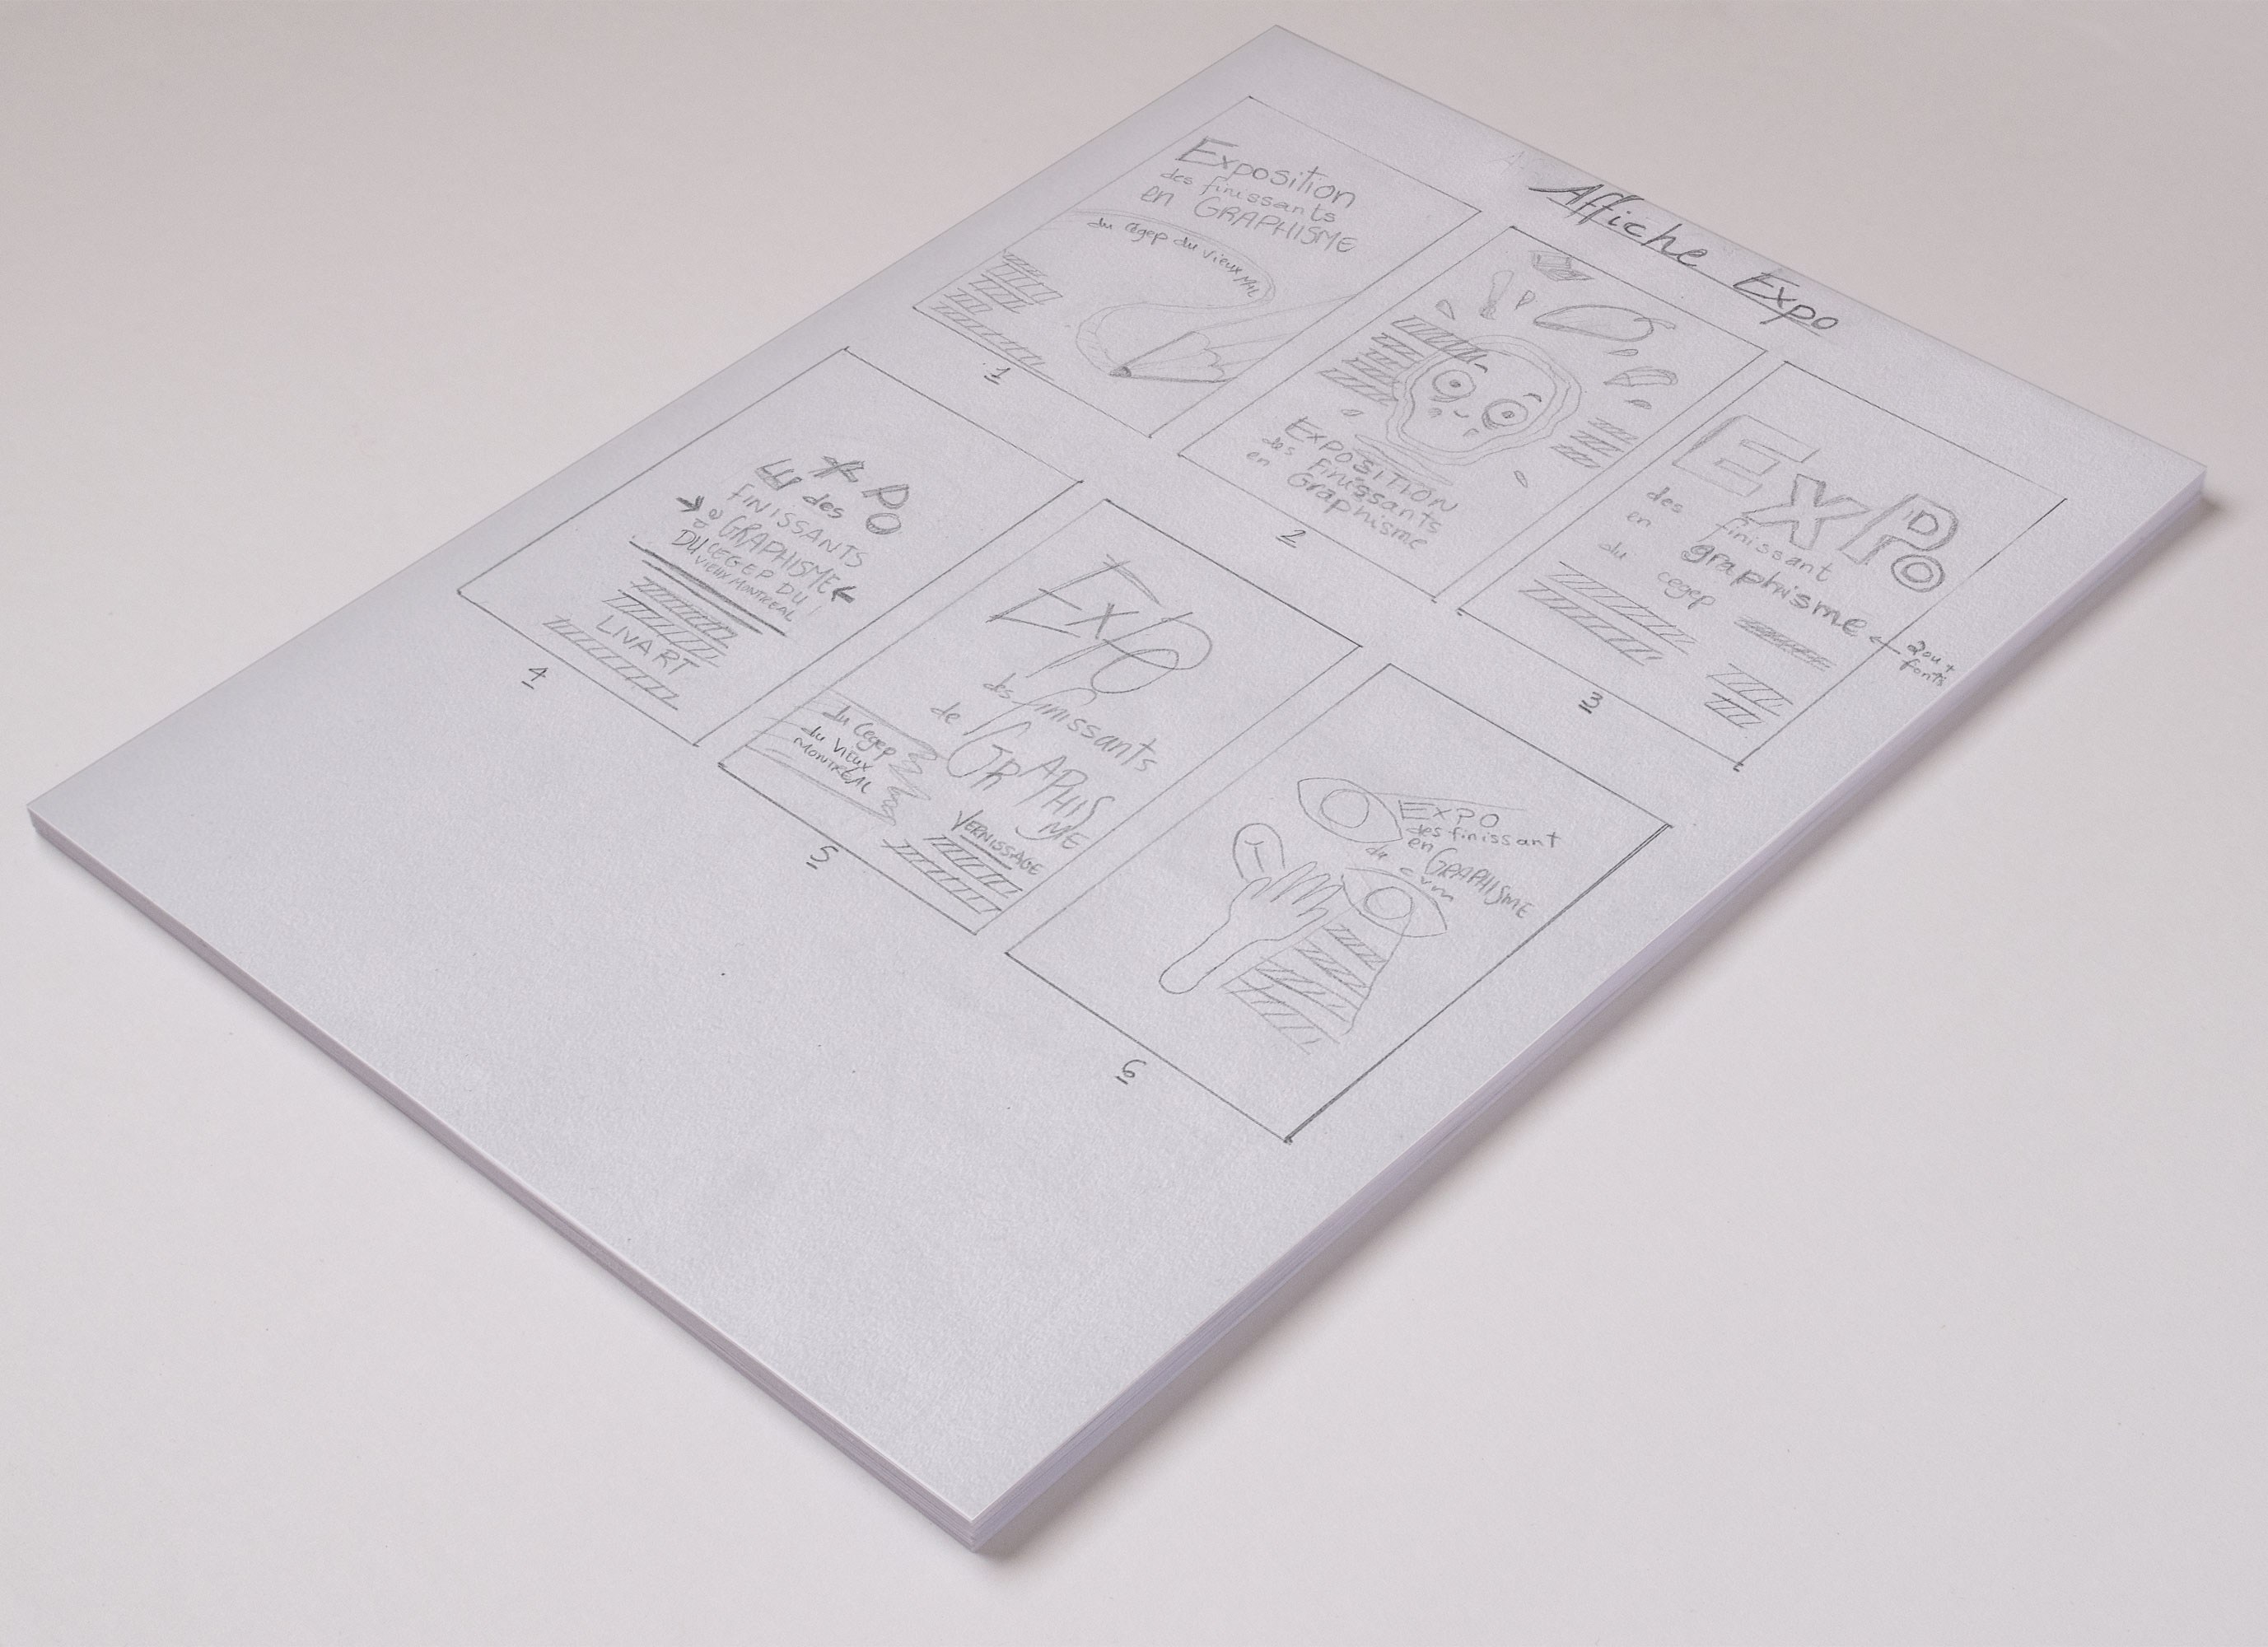 Affiche Expo
Exposition
des finissants
en GRAPHISME
du Cégep du Vieux MTL
1
EXPOSITION
des finissants
en Graphisme
2
EXPO
des finissant
en graphisme
du cegep
2 ou +
fonts
3
EXPO
des
FINISSANTS
de GRAPHISME
DU CEGEP DU
VIEUX MONTREAL
LIVART
4
EXPO
des finissants
de GRAPHIS
ME
du Cegep
du VIEUX
MONTRÉAL
VERNISSAGE
5
EXPO
des finissant
en GRAPHISME
du cvm
6